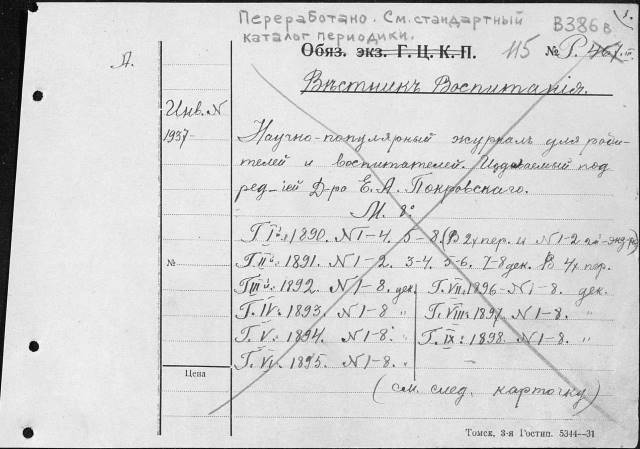 Переработано. См. стандартный
каталог периодики.
В386в
1.
Обяз. экз. Г. Ц. К. П.
115
№ Р. 467
Д.
Вѣстникъ Воспитанія.
Инв. N
1937-
Научно-популярный журналъ для роди-
телей и воспитателей. Издаваемый под
ред-іей Д-ра Е. А. Покровскаго.
М. 8°
Г. I: 1890. N 1-4. 5-8. (В 2х пер. и N 1-2 2й-экз-р)
№
Г. II: 1891. N 1-2. 3-4. 5-6. 7-8 дек. В 4х пер.
Г. III: 1892. N 1-8. дек.
Г. IV: 1893. N 1-8 "
Г. V: 1894. N 1-8. "
Г. VI: 1895. N 1-8. "
Г. VII: 1896- N 1-8. дек.
Г. VIII: 1897. N 1-8. "
Г. IX: 1898. N 1-8. "
—
Цена
(см. след. карточку)
Томск, 3-я Гостип. 5344—31